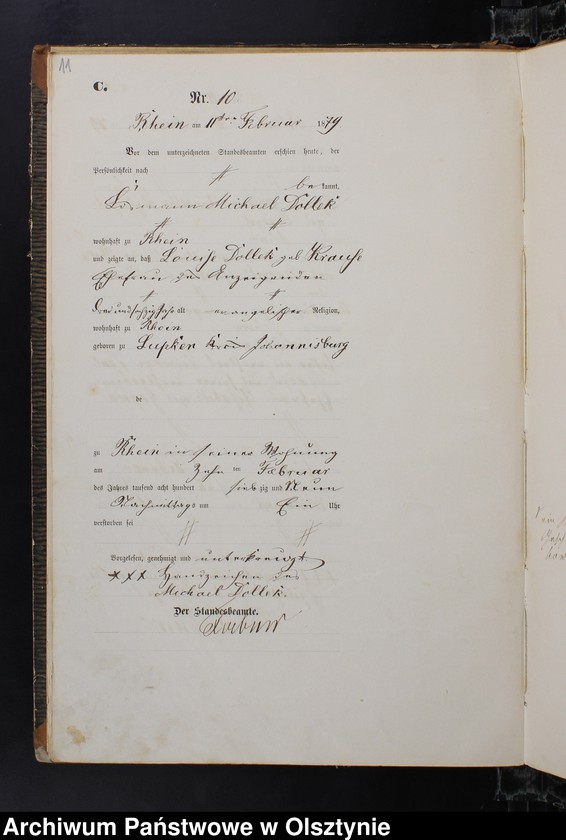 11
C.
Nr. 10
Rhein am 11ten Februar 1879
Vor dem unterzeichneten Standesbeamten erschien heute, der
Persönlichkeit nach
be kannt,
Michael Dollek
wohnhaft zu Rhein
und zeigte an, daß Louise Dollek geb Krause
Ehefrau des Anzeigenden
alt evangelischer Religion,
wohnhaft zu Rhein
geboren zu Lupken Kreis Johannisburg
de
zu Rhein in seiner Wohnung
am Zehn ten Februar
des Jahres tausend acht hundert sieb zig und Neun
Nachmittags um Ein Uhr
verstorben sei
Vorgelesen, genehmigt und unterkreuzt
+++ Handzeichen des
Michael Dollek.
Der Standesbeamte.
Archiwum Państwowe w Olsztynie